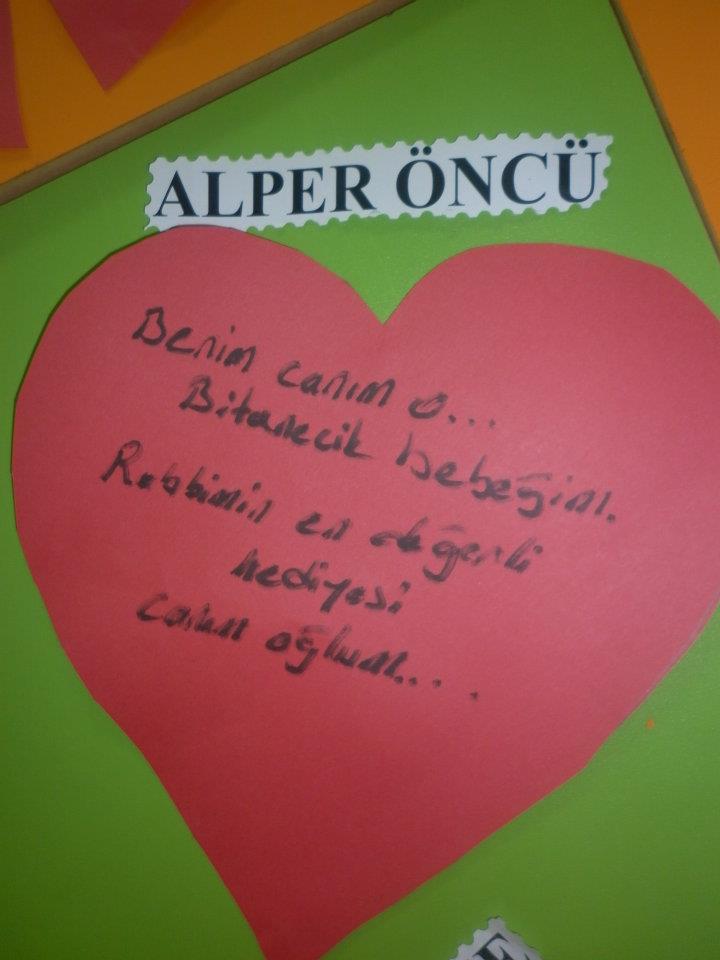 ALPER ÖNCÜ
Benim canım o...
Bitanecik bebeğim.
Rabbimin en değerli
hediyesi
canım oğlum....
E